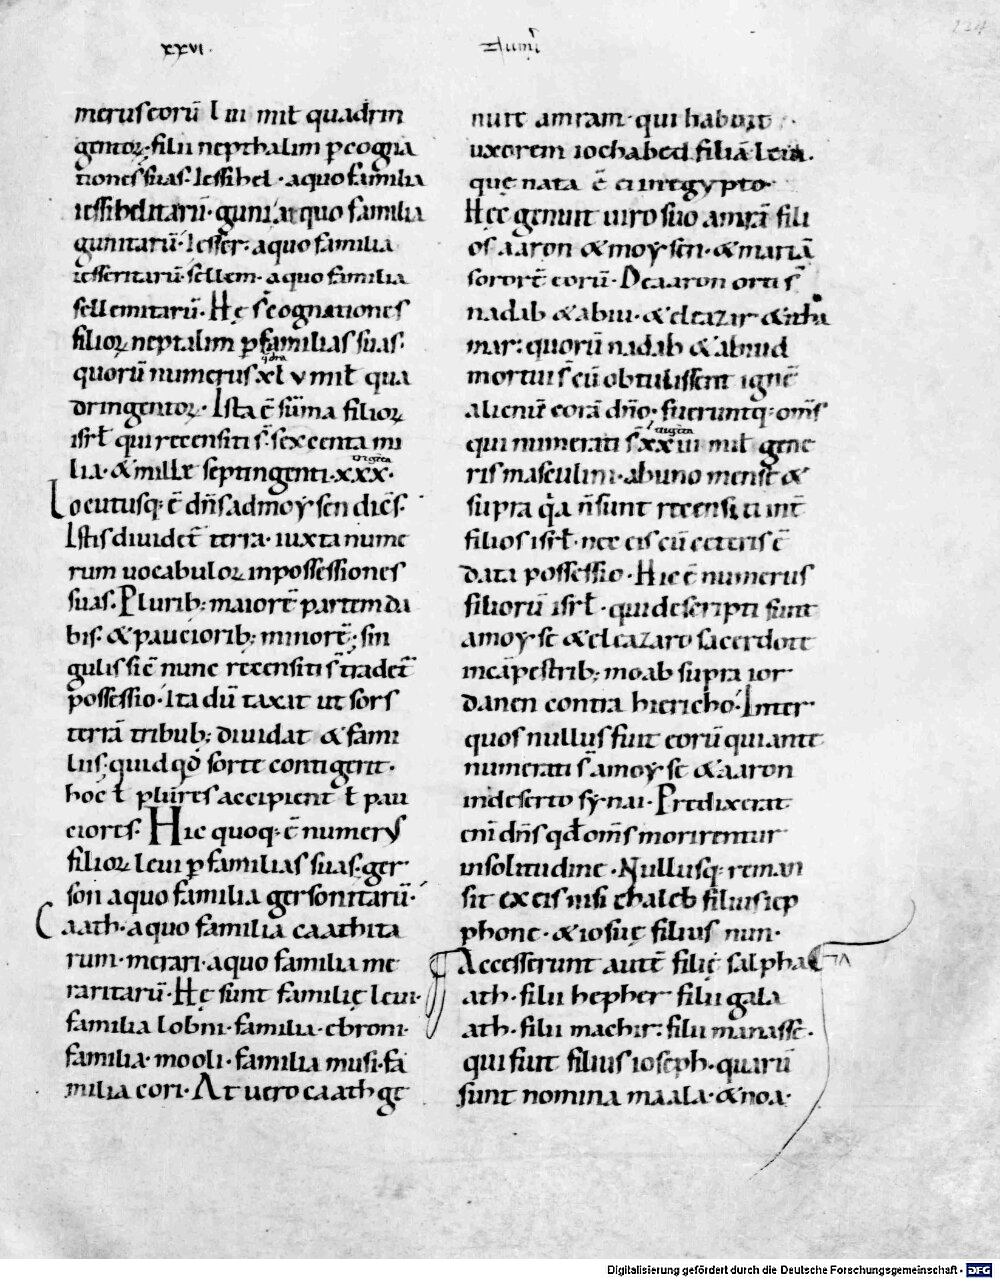 xxvi·
Numi
224
merus eorū l iii mil quadrin
gentoꝝ· filii nepthalim p cogna
tiones suas· Iessihel · a quo familia
iessihelitarū· guni· a quo familia
gunitarū· Iesser· a quo familia
iesseritarū· sellem· a quo familia
sellemitarū· Hę s̄ cognationes
filioꝝ neptalim p familias suas·
quorū numerus xl v mil qua
dringentoꝝ· Ista ē sūma filioꝝ
isrl qui recensiti s̄· sexcenta mi
lia· & mille septingenti· xxx·
Locutusq· ē dn̄s ad moysen dicēs·
Istis dividet̄ terra· iuxta nume
rum vocabuloꝝ in possessiones
suas· Plurib; maiorē partem da
bis· & paucioribꝫ minorē; sin
gulis sic̄ nunc recensiti s̄ tradet̄
possessio· Ita dū taxat ut sors
terrā tribub; dividat & fami
liis; quidqd sorte contigerit·
hoc ł plures accipient ł pau
ciores· Hic quoq· ē numerus
filioꝝ levi p familias suas· ger
son a quo familia gersonitarū·
Caath· a quo familia caathita
rum· merari· a quo familia me
raritarū· Hę sunt familię levi·
familia lobni· familia· ebroni·
familia· mooli· familia musi· fa
milia cori· At vero caath ge
nuit amram· qui habuit
uxorem iochabed filiā levi·
quę nata ē ei in egypto·
Hęc genuit viro suo amrā fili
os aaron & moysen· & mariā
sororē eorū· De aaron orti s̄
nadab & abiu· & eleazar & itha
mar· quorū nadab & abiud
mortui s̄ cū obtulissent ignē
alienū corā dn̄o· fueruntq· om̄s
qui numerati s̄ xx iii mil gene
ris masculini· ab uno mense &
supra q̇a n̄ sunt recensiti int̄
filios isrl· nec eis cū ceteris ē
data possessio· Hic ē numerus
filiorū isrl· qui descripti sunt
a moyse & eleazaro sacerdote
in cāpestrib; moab supra ior
danen contra hiericho· Inter
quos nullus fuit eorū qui ante
numerati s̄ a moyse & aaron
in deserto synai· Predixerat
eni dn̄s qd om̄s morirentur
in solitudine· Nullusq· reman
sit ex eis nisi chaleb filius iep
phone· & iosue filius nun·
Accesserunt autē filię salpha
ath· filii hepher filii gala
ath· filii machir· filii manasse·
qui fuit filius ioseph· quarū
sunt nomina maala· & noa·
Digitalisierung gefördert durch die Deutsche Forschungsgemeinschaft - DFG